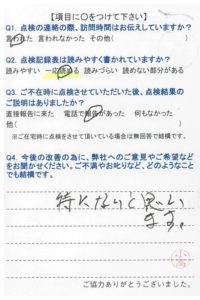 【項目に○をつけて下さい】
Q1. 点検の連絡の際、訪問時間はお伝えしていますか？
言われた 言われなかった その他( )
Q2. 点検記録表は読みやすく書かれていますか？
読みやすい 一応読める 読みづらい 読めない部分がある
Q3. ご不在時に点検させていただいた後、点検結果の
ご説明はありましたか？
直接報告に来た 電話で報告があった 何もなかった
他( )
※ご在宅時に点検をさせて頂いている場合は無回答で結構です。
Q4. 今後の改善の為に、弊社へのご意見やご希望など
をお聞かせください。ご不満やお叱りなど、どのようなこと
でも結構です。
特にないと思い
ます。
ご協力ありがとうございました。